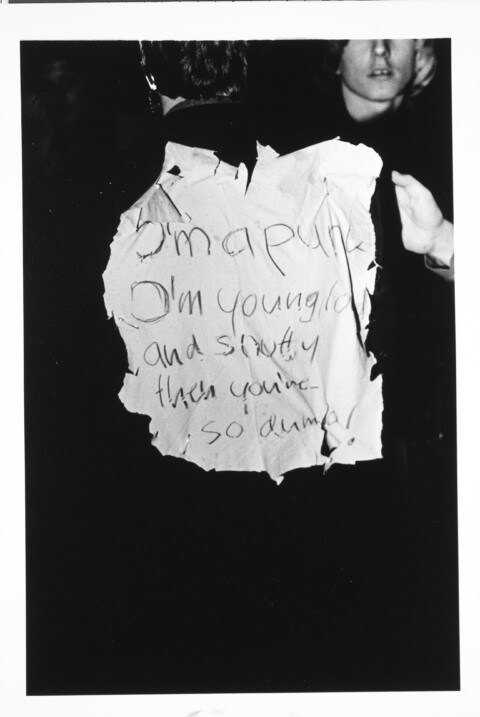 I'm a punk
I'm young
and snotty
then you're
so dumb!